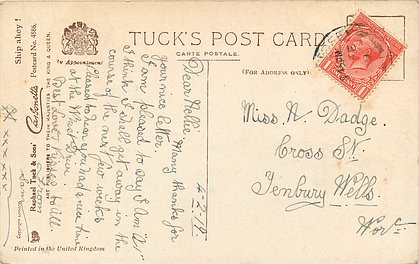 TUCK'S POST CARD
CARTE POSTALE.
(FOR ADDRESS ONLY)
by Appointment
Ship ahoy!
Postcard No. 4886.
Carbonette
Raphael Tuck & Sons'
ART PUBLISHERS TO THEIR MAJESTIES THE KING & QUEEN.
Printed in the United Kingdom
4-2-19
Dear Nellie Many thanks for
your nice letter.
I am pleased to say I am "A1"
I think I shall get away in the
course of the next few weeks
pleased to hear you had a nice time
at the Whist Drive.
Best Love & Kisses to All.
x x x x x x
Miss N. Dadge.
Cross St.
Tenbury Wells.
Worc.